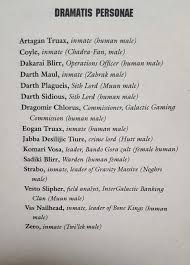 DRAMATIS PERSONAE
Artagan Truax, inmate (human male)
Coyle, inmate (Chadra-Fan, male)
Dakarai Blirr, Operations Officer (human male)
Darth Maul, inmate (Zabrak male)
Darth Plagueis, Sith Lord (Muun male)
Darth Sidious, Sith Lord (human male)
Dragomir Chlorus, Commissioner, Galactic Gaming
Commission (human male)
Eogan Truax, inmate (human male)
Jabba Desilijic Tiure, crime lord (Hutt male)
Komari Vosa, leader, Bando Gora cult (female human)
Sadiki Blirr, Warden (human female)
Strabo, inmate, leader of Gravity Massive (Noghri
male)
Vesto Slipher, field analyst, InterGalactic Banking
Clan (Muun male)
Vas Nailhead, inmate, leader of Bone Kings (human
male)
Zero, inmate (Twi'lek male)